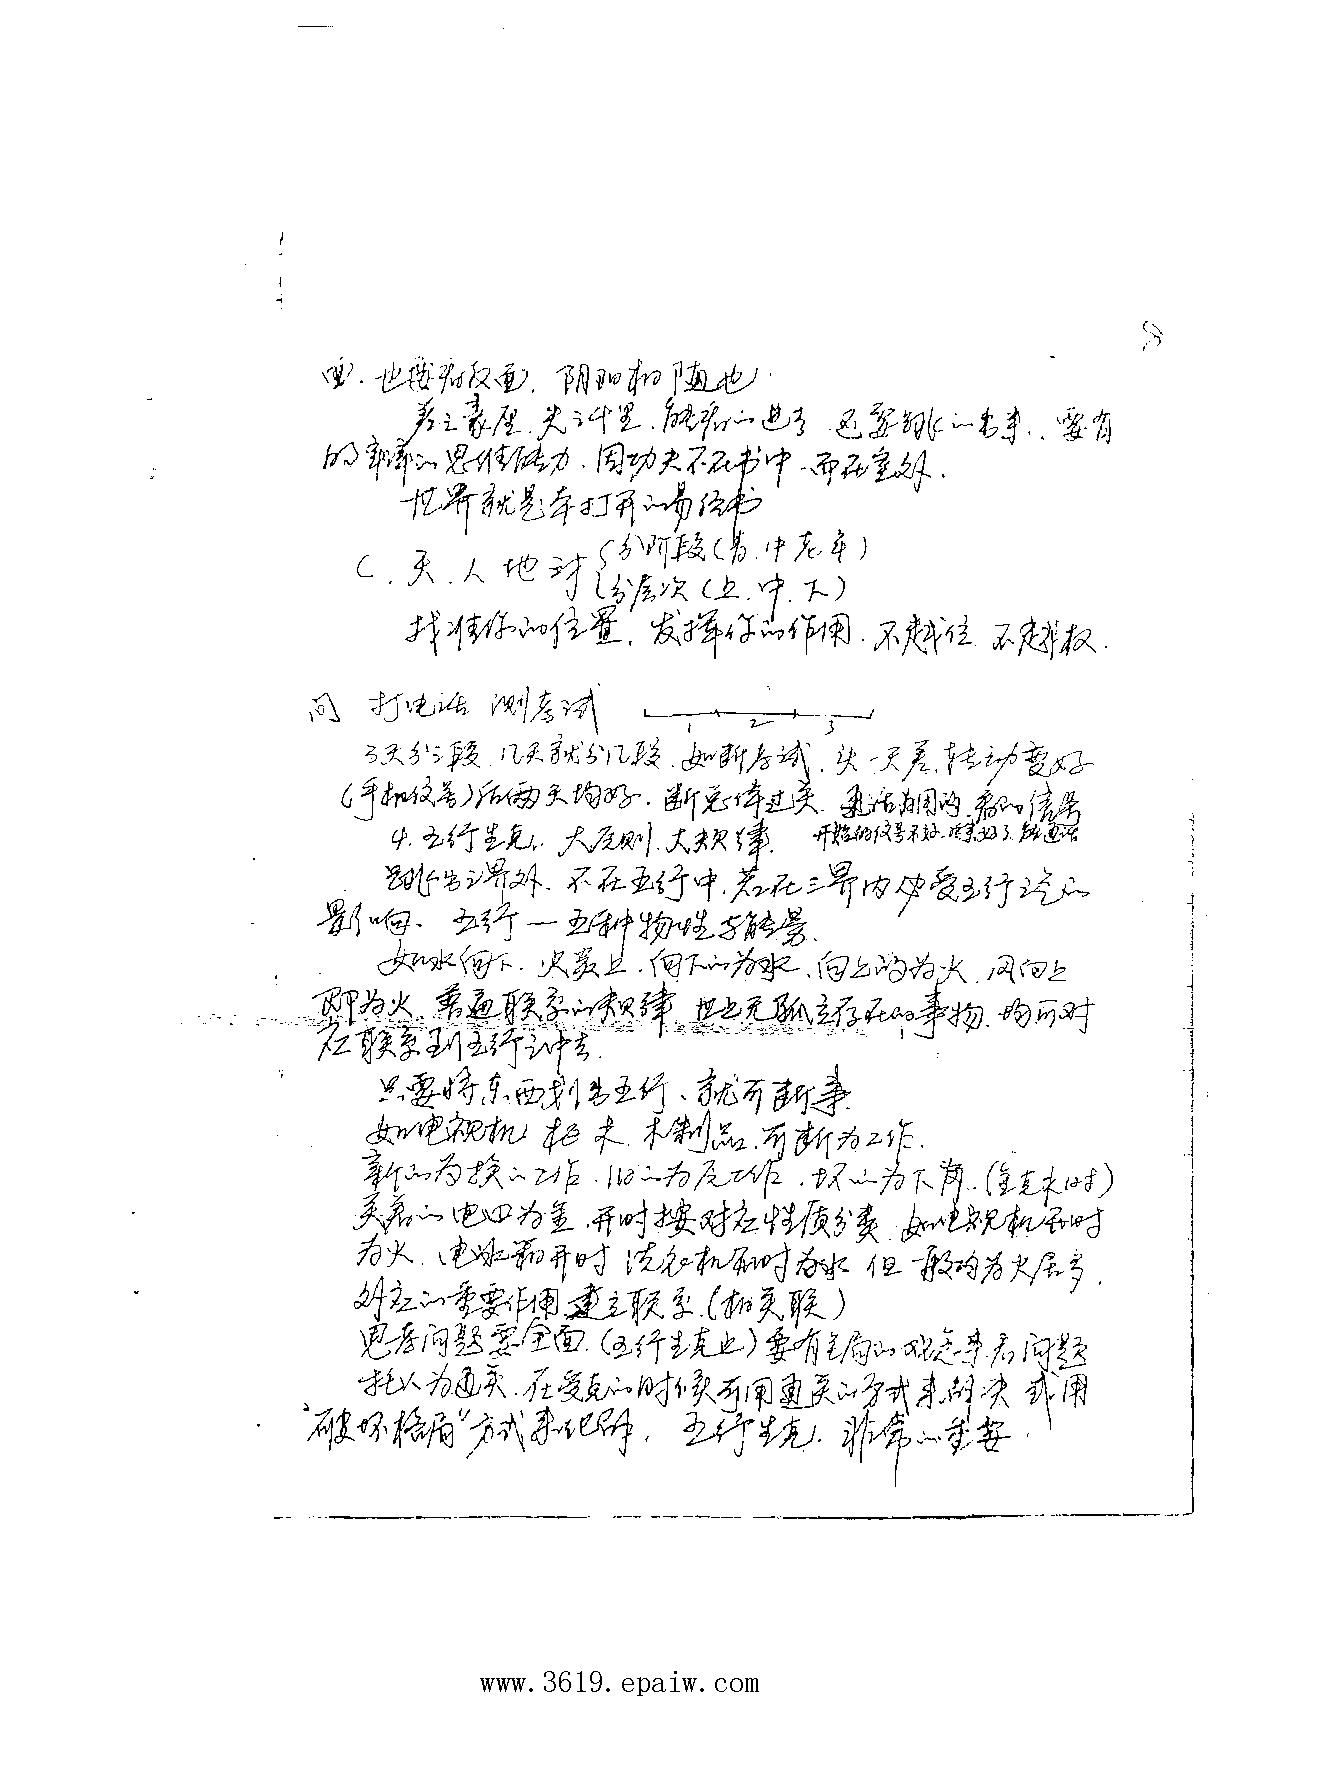 8
面. 也要看反面. 阴阳相随也.
差之豪厘. 失之千里. 能看的进了 还要跳的出来. 要有
的思维能力. 因功夫不在书中. 而在室外.
世界就是本打开的易经书
C. 天. 人 地 时 {分阶段(青. 中 老 年)
{分层次(上. 中. 下)
找准你的位置. 发挥你的作用. 不越位 不越权.
问 打电话 测考试 1 2 3
3天分三段. 几天就分几段. 如断考试. 头一天差. 转动变好
(手机信号)后两天均好. 断 过关. 看的信号
4. 五行生克. 大原则. 大规律. 开始的信号不好. 后来好了. 能通话
跳出三界外. 不在五行中. 若在三界内 必受五行之
影响. 五行一五种物性与能量.
如水向下. 火炎上. 向下的为水. 向上的为火. 风向上
即为火. 普遍联系的规律. 世上无孤立存在的事物. 均可对
应联系到五行之中去.
只要将东西划出五行. 就可断事.
如电视机 柜 木. 木制品. 可断为工作.
新的为换的工作. 旧的为原工作. 坏的为下岗. (金克木时)
关着的电四为金. 开时按对应性质分类. 如电视机开时
为火. 电冰箱开时 洗衣机开时为水 但一般均为火居多.
对应的重要作用 建立联系. (相关联)
思考问题要全面. (五行生克上) 要有全局的观念来看问题
托人为通关. 在受克的时候可用通关的方式来解决 或用
“破坏格局”方式来化解. 五行生克. 非常的重要.
www.3619.epaiw.com